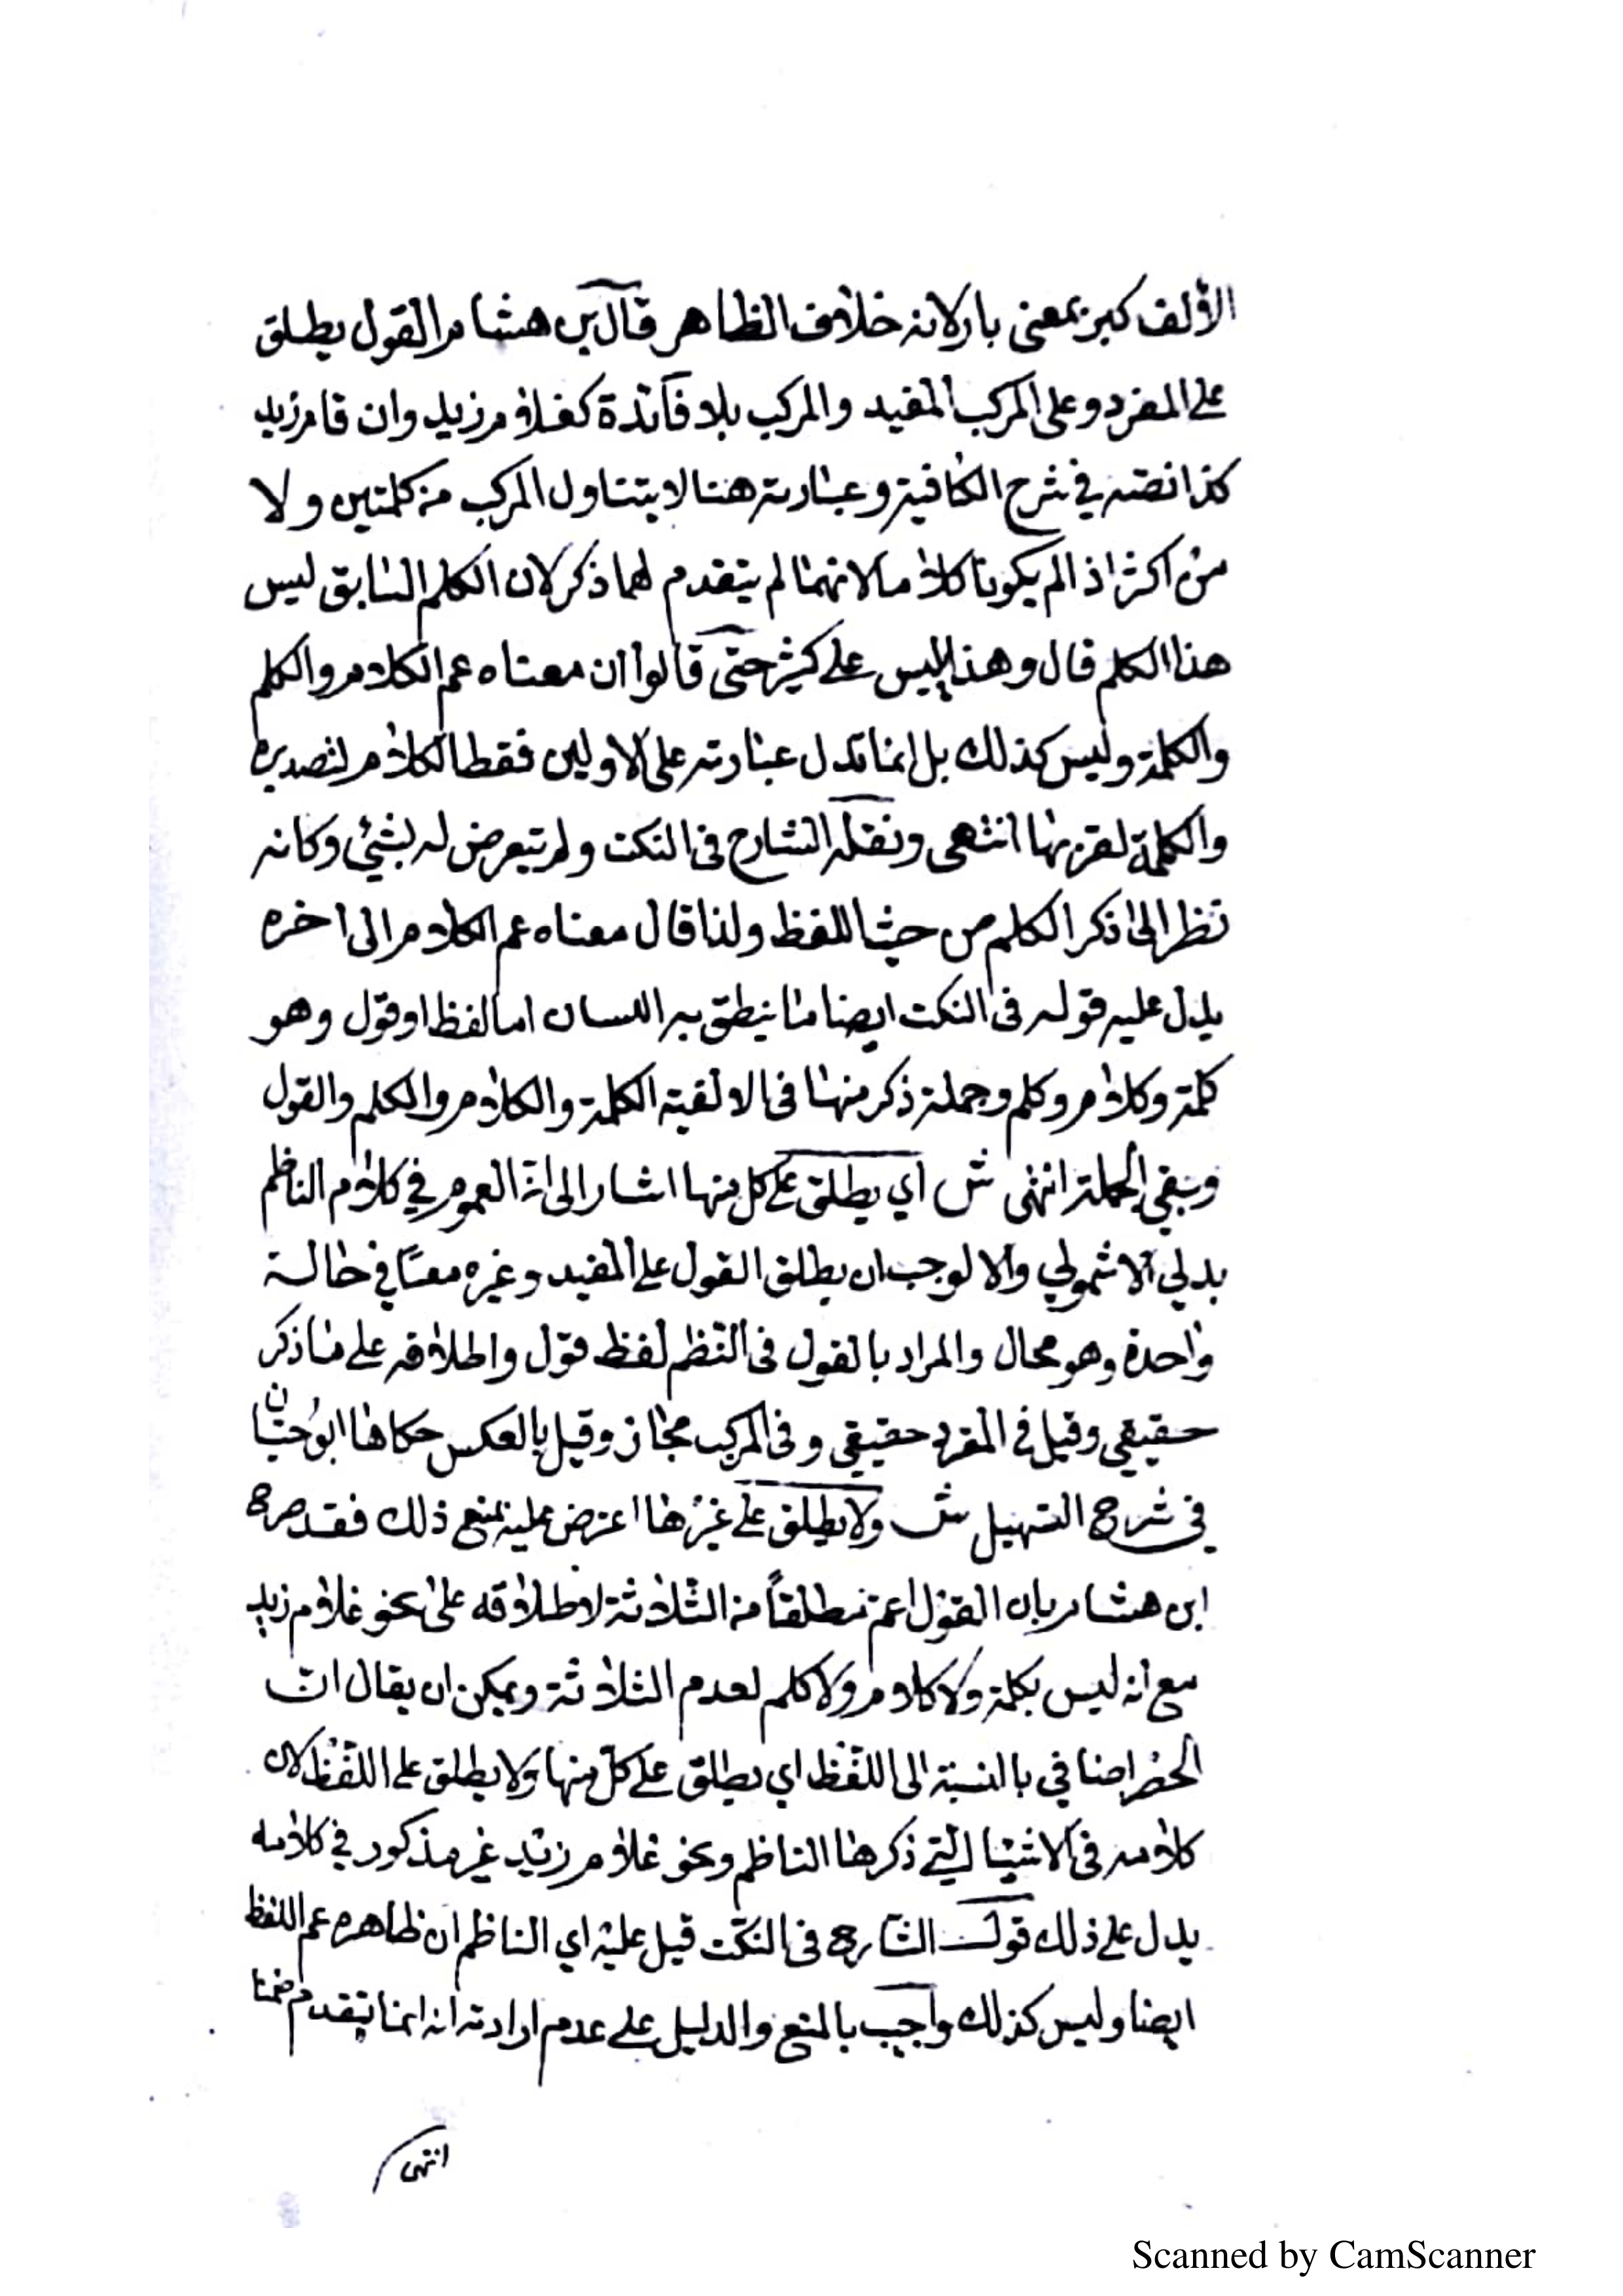 الالف كبر بمعنى بار لانه خلاف الظاهر قال بن هشام القول يطلق
على المفرد وعلى المركب المفيد والمركب بلا فآئدة كغلام زيد وان قام زيد
كذا نصه في شرح الكافية وعبارته هنا لا يتناول المركب من كلمتين ولا
من اكثر اذا لم يكونا كلاما لانهما لم يتقدم لهما ذكر لان الكلم السابق ليس
هذا الكلم قال وهذا لبس على كثير حتى قالوا ان معناه عم الكلام والكلم
والكلمة وليس كذلك بل انما تدل عبارته على الاولين فقط الكلام لتصديره
والكلمة لقربها انتهى ونقله الشارح فى النكت ولم يتعرض له بشئ وكانه
نظر الى ذكر الكلم من حيث اللفظ ولذا قال معناه عم الكلام الى اخره
يدل عليه قوله فى النكت ايضا ما ينطق به اللسان اما لفظ او قول وهو
كلمة وكلام وكلم وجملة ذكر منها فى الالفية الكلمة والكلام والكلم والقول
وبقي الجملة انتهى ش اي يطلق على كل منها اشار الى ان العموم في كلام الناظم
بدلي لا شمولي والا لوجب ان يطلق القول على المفيد وغيره معًا في حالة
واحدة وهو محال والمراد بالقول فى النظم لفظ قول واطلاقه على ما ذكر
حقيقي وقيل في المفرد حقيقي وفى المركب مجاز وقيل بالعكس حكاها ابو حيان
في شرح التسهيل ش ولا يطلق على غيرها اعترض عليه بمنع ذلك فقد صرح
ابن هشام بان القول اعم مطلقاً من الثلاثة لاطلاقه على نحو غلام زيد
مع انه ليس بكلمة ولا كلام ولا كلم لعدم الثلاثة ويمكن ان يقال ان
الحصر اضافي بالنسبة الى اللفظ اي يطلق على كل منها ولا يطلق على اللفظ لان
كلامه فى الاشيا التي ذكرها الناظم ونحو غلام زيد غير مذكور في كلامه
يدل على ذلك قول الشارح فى النكت قيل عليه اي الناظم ان ظاهره عم اللفظ
ايضا وليس كذلك واجيب بالمنع والدليل على عدم ارادته انه انما يتقدم ضمنا
انتهى
Scanned by CamScanner